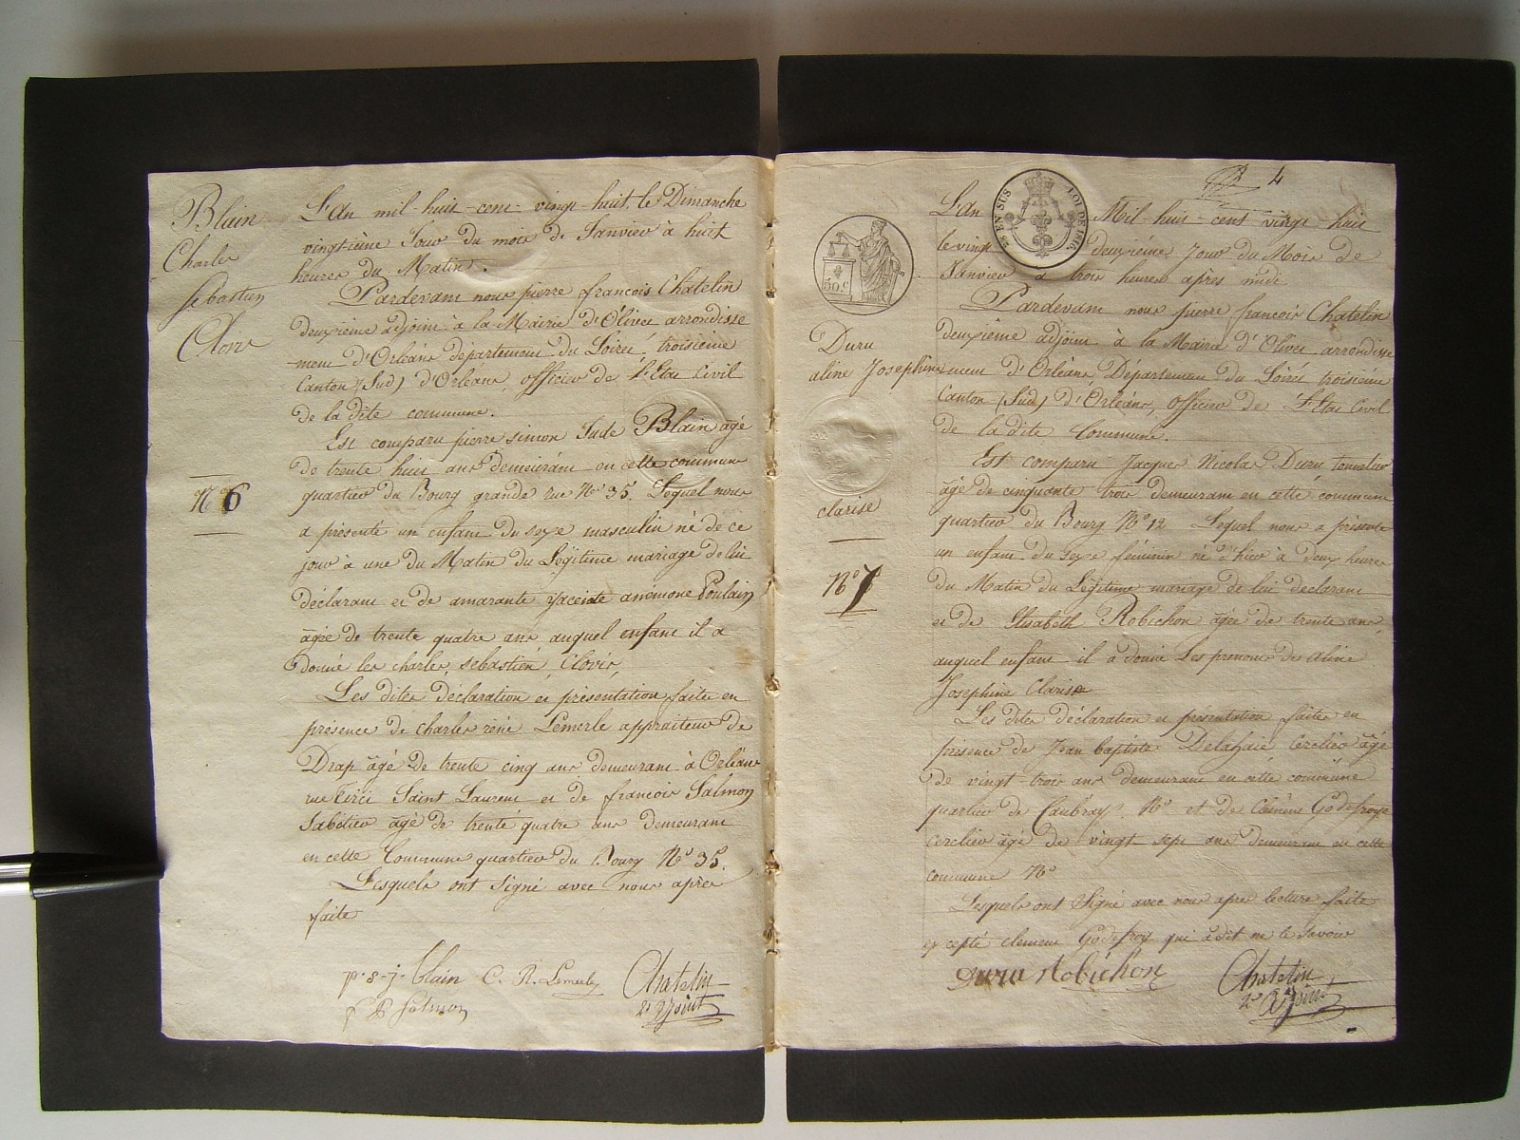 Blain
Charles
sebastien
Clovis
N° 6
L'An mil-huit-cent-vingt-huit, le Dimanche
vingtième Jour du mois de Janvier à huit
heures du Matin.
Pardevant nous pierre françois Chatelin
deuxième adjoint à la Mairie d'Olivet arrondisse
-ment d'Orléans département du Loiret, troisième
Canton (Sud) d'Orléans, officier de l'Etat Civil
de la dite commune.
Est comparu pierre simon Jude Blain agé
de trente huit ans demeurant en cette commune
quartier du Bourg grande rue N° 35. Lequel nous
a présenté un enfant du sexe masculin né de ce
jour à une du Matin du Légitime mariage de lui
déclarant et de amarante yaceinte anémone Poulain
âgée de trente quatre ans auquel enfant il a
donné les charles sebastien, Clovis,
Les dites déclaration et présentation faite en
présence de charles réné Lemerle appraiteur de
Drap âgé de trente cinq ans demeurant à Orléans
rue Saint Laurent et de françois Salmon
Sabotier âgé de trente quatre ans demeurant
en cette Commune quartier du Bourg N° 35.
Lesquels ont Signé avec nous après
faite
p. s. j. blain C. R. Lemerle Chatelin
f B Salmon 2e adjoint
4
EN SUS
LOI DE 1816
50 c
Duru
aline Josephine
clarise
N° 7
L'An Mil-huit-cent vingt huit
le vingt deuxième Jour du Mois de
Janvier à trois heures après midi
Pardevant nous pierre françois Chatelin
deuxième adjoint à la Mairie d'Olivet arrondisse
-ment d'Orléans Département du Loiret troisième
Canton (Sud) d'Orléans, Officier de l'Etat Civil
de la dite Commune.
Est comparu Jacques Nicolas Duru tonnelier
âgé de cinquante trois demeurant en cette commune
quartier du Bourg N° 12 Lequel nous a présenté
un enfant du sexe féminin né d'hier à deux heures
du Matin du Légitime mariage de lui declarant
et de Elisabeth Robichon âgée de trente ans,
auquel enfant il a donné Les prenoms de aline
Josephine Clarise
Les dites déclaration et présentation faites en
présence de Jean baptiste Delahaie Cerclier âgé
de vingt trois ans demeurant en cette commune
quartier de Caubray N° et de Clément Godefroye
Cerclier âgé de vingt-sept ans demeurant en cette
commune N°
Lesquels ont Signé avec nous apres lecture faite
excepté clement Godefroy qui a dit ne le Savoir
Duru Robichon Chatelin
2e adjoint